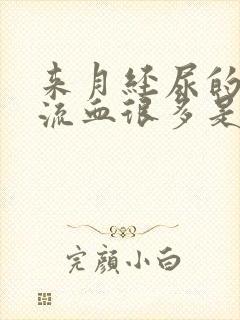 来月经尿的
流血很多是
完颜小白